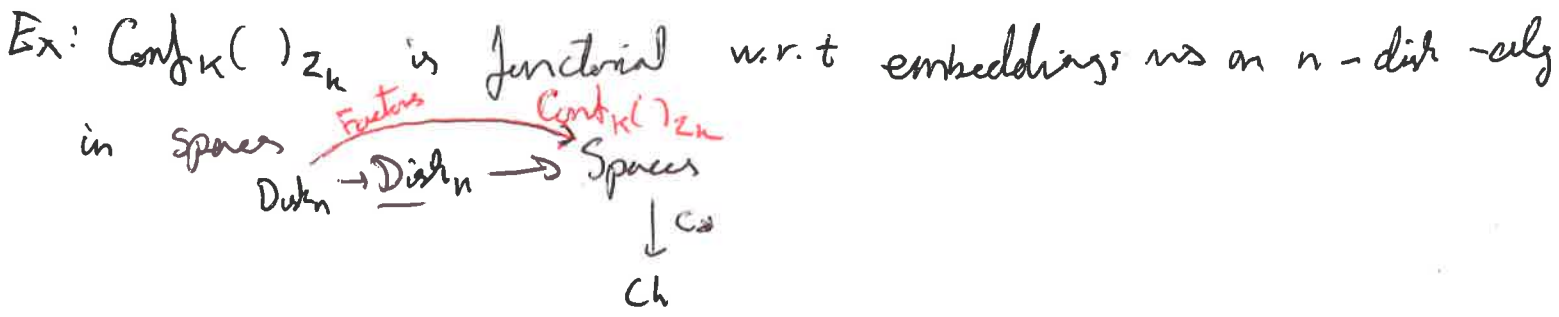 Ex: Conf_K( )_{Σ_k} is functorial w.r.t embeddings ⇝ an n-disk-alg
Factors Conf_K( )_{Σ_k}
in spaces
Disk_n → Disk_n → Spaces
↓ C_*
Ch